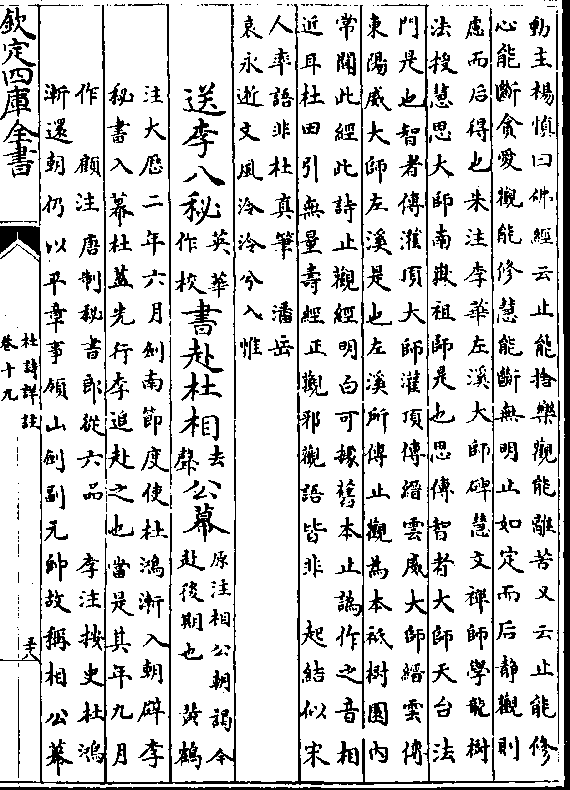 動主楊慎曰佛經云止能捨樂觀能離苦又云止能修
心能斷貪愛觀能修慧能斷無明止如定而后静觀則
慮而后得也朱注李華左溪大師碑慧文禪師學龍樹
法授慧思大師南嶽祖師是也思傳智者大師天台法
門是也智者傳灌頂大師灌頂傳縉雲威大師縉雲傳
東陽威大師左溪是也左溪所傳止觀為本祇樹園内
常聞此經此詩止觀經明白可據舊本止譌作之音相
近耳杜田引無量壽經正觀邪觀語皆非　起結似宋
人率語非杜真筆　潘岳
哀永逝文風泠泠兮入帷
送李八秘英華作校書赴杜相去聲公幕原注相公朝謁今赴後期也　黄鶴
注大厯二年六月劍南節度使杜鴻漸入朝辟李
秘書入幕杜蓋先行李追赴之也當是其年九月
作　顧注唐制秘書郎從六品　李注按史杜鴻
漸還朝仍以平章事領山劍副元帥故稱相公幕
欽定四庫全書
杜詩詳註
卷十九